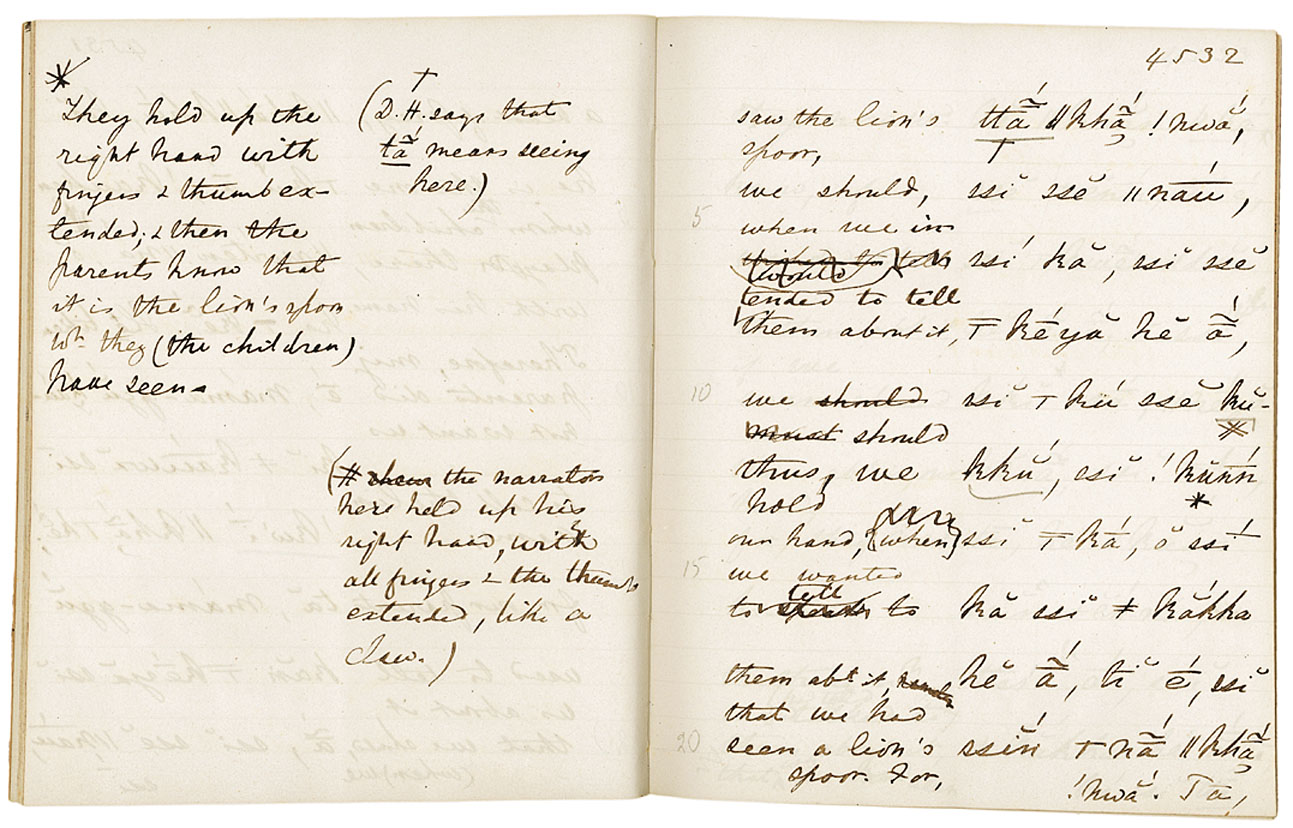 *
They hold up the
right hand with
fingers & thumb ex-
tended; & then the
parents know that
it is the lion's spoor
wh. they (the children)
have seen-
†
(D. H. says that
tã́ means seeing
here.)
(# the narrator
here held up his
right hand, with
all fingers & the thumb
extended, like a
claw.)
4532
saw the lion's ttã́ ǁkhã́ ǃnwá,
spoor, †
we should, ssĭ ssĕ ǁnáu,
5
when we in-
would tell ssí kă, ssĭ ssĕ
tended to tell
them about it, ∓ kéyă hĕ ã́,
10
we should ssĭ ∓ kú ssĕ kŭ-
must should *
thus, we kkŭ, ssĭ ǃkŭńń
hold *
our hand, (when) ssĭ ∓ ká, ŏ ssí
15
we wanted
tell
to speak to kă ssĭ ǂ kăkka
them abt. it, hĕ ã́, tĭ é, ssĭ
that we had
20
seen a lion's ssĕń ∓ nã́ ǁkhã́
spoor. For, ǃnwá. Tā,